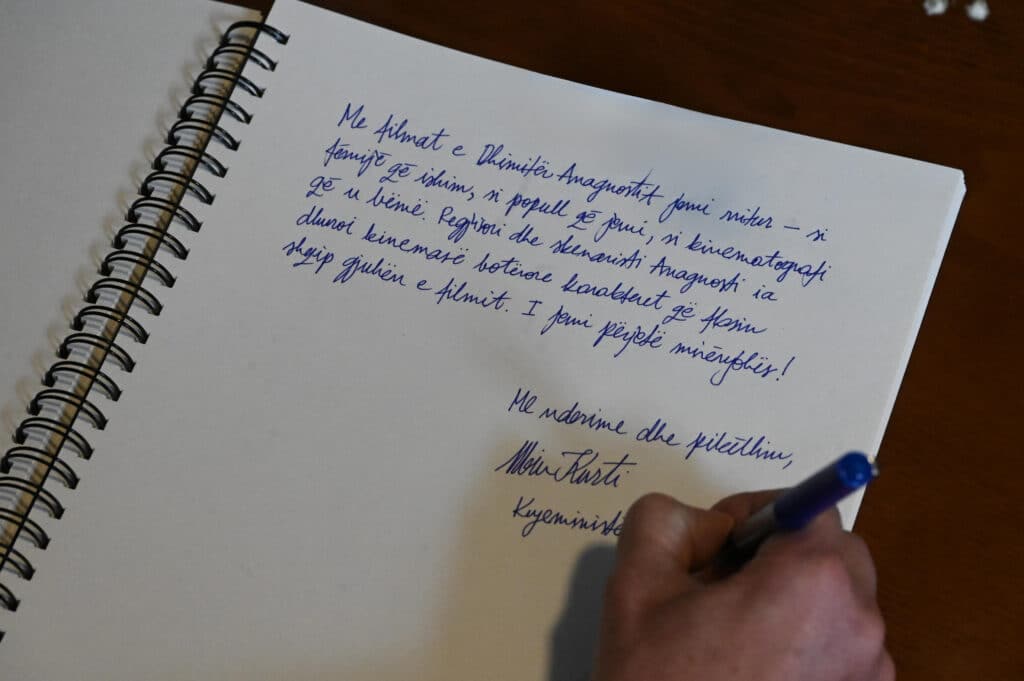 Me filmat e Dhimitër Anagnostit jemi rritur – si
fëmijë që ishim, si popull që jemi, si kinematografi
që u bëmë. Regjisori dhe skenaristi Anagnosti ia
dhuroi kinemasë botërore karakteret që flasin
shqip gjuhën e filmit. I jemi përjetë mirënjohës!
Me nderime dhe pikëllim,
Albin Kurti
Kryeministë